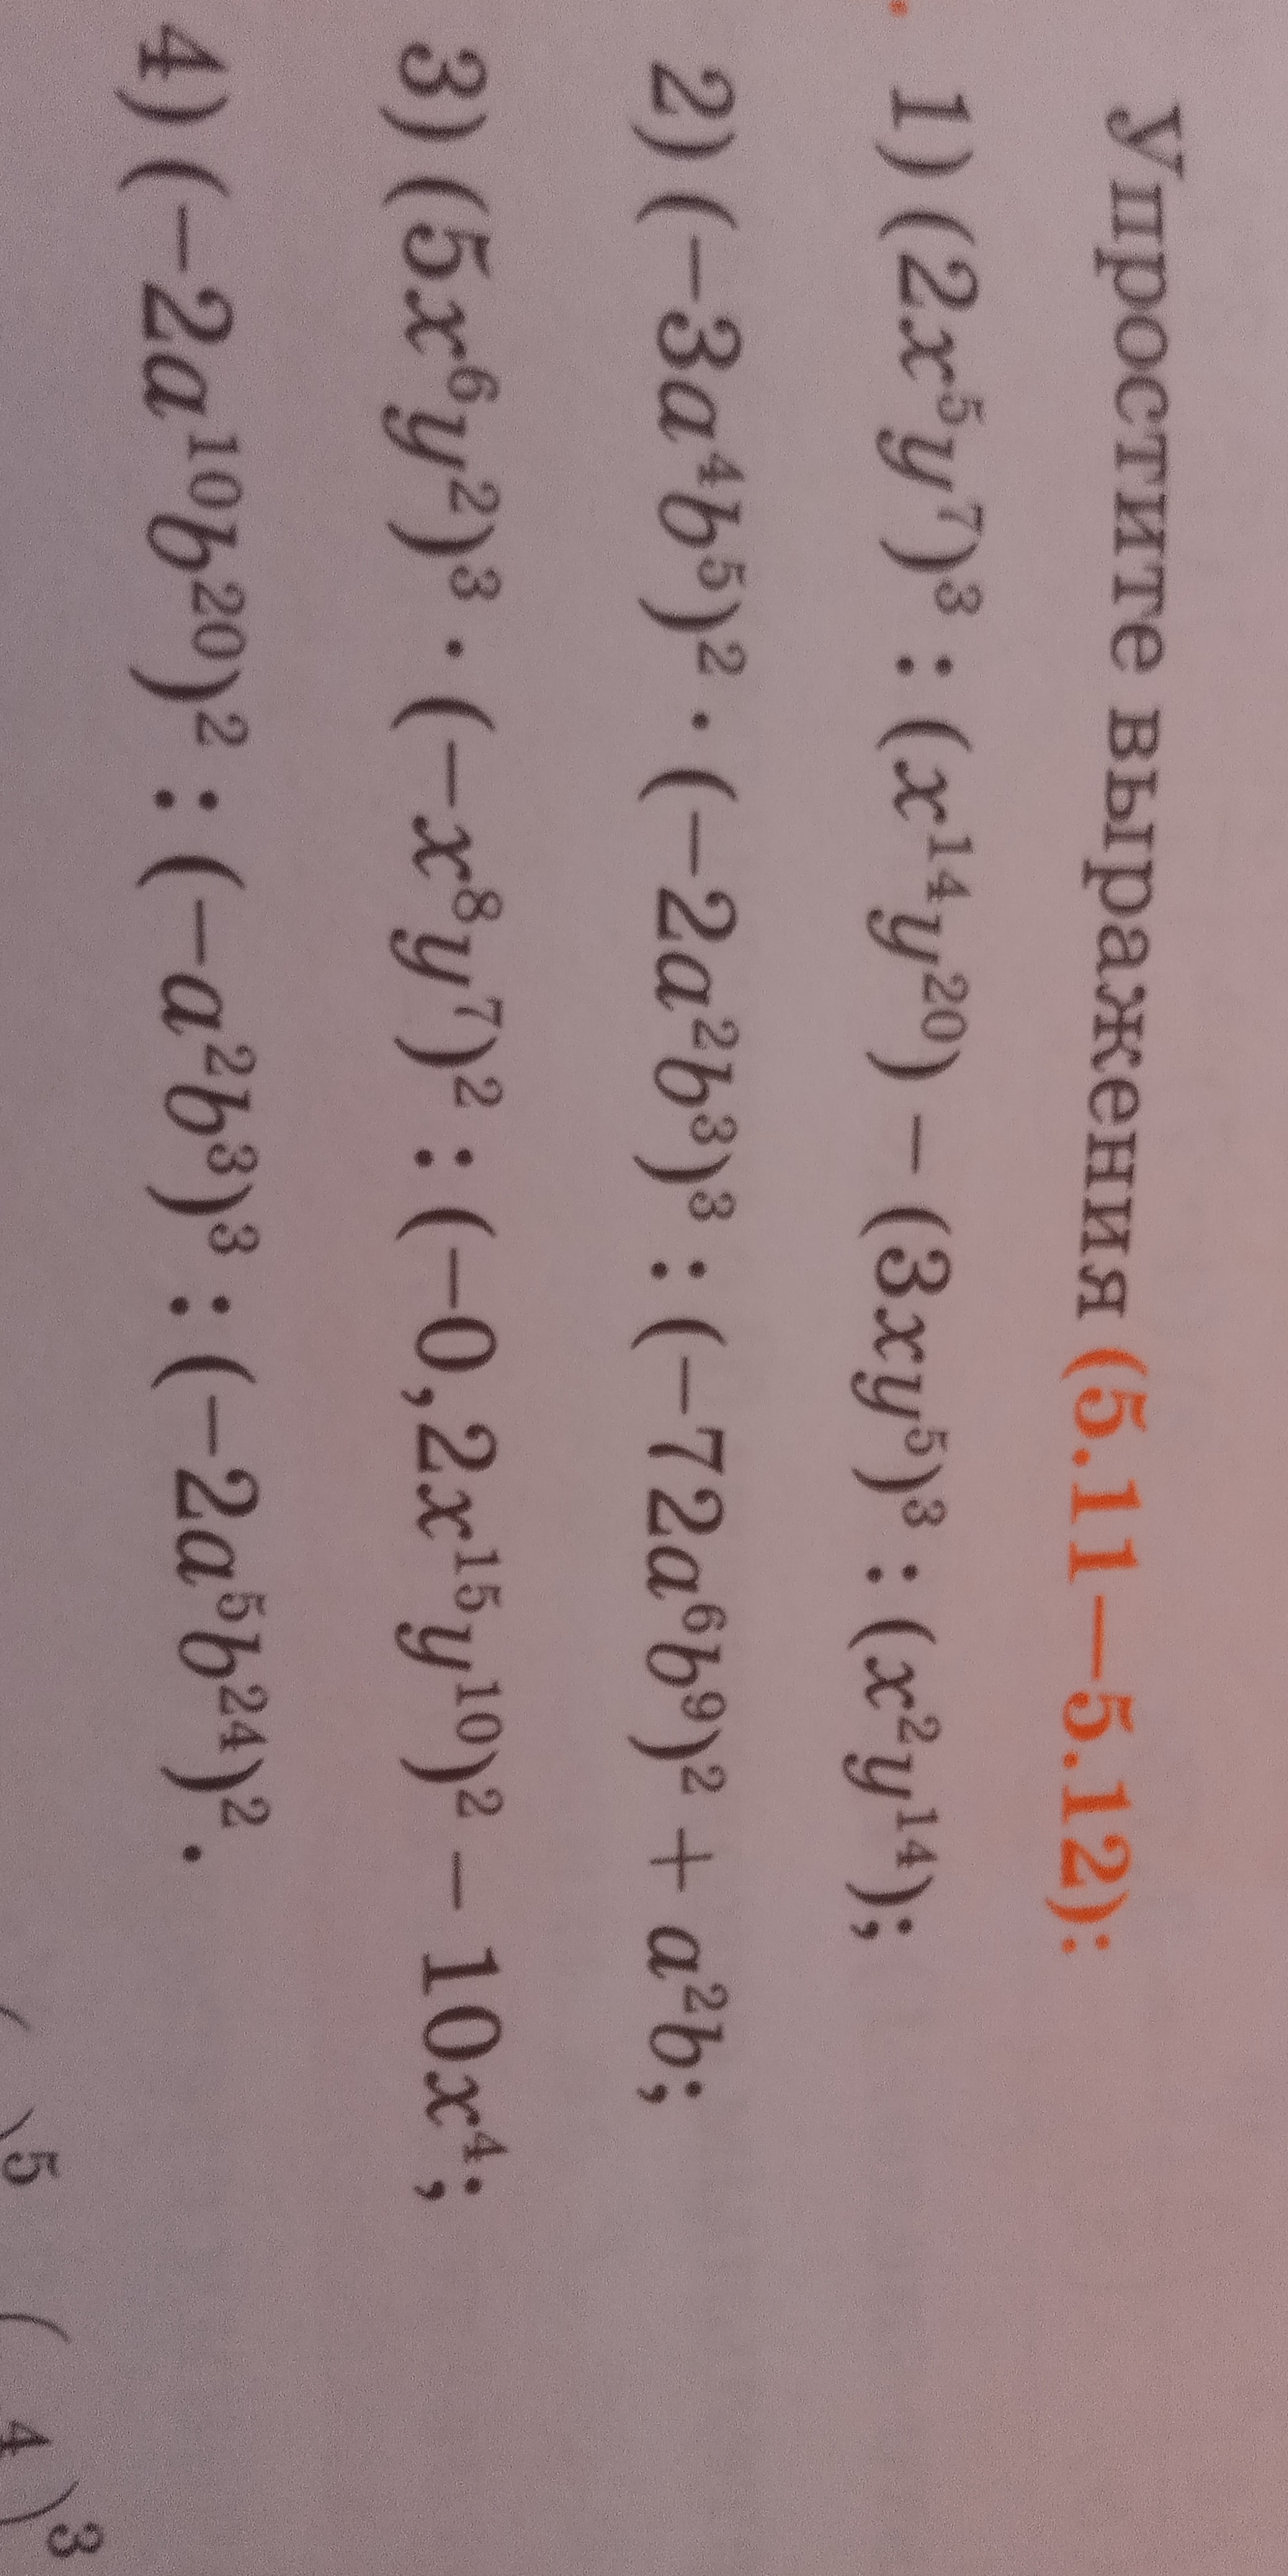 Упростите выражения (5.11—5.12):
1) (2x⁵y⁷)³ : (x¹⁴y²⁰) − (3xy⁵)³ : (x²y¹⁴);
2) (−3a⁴b⁵)² · (−2a²b³)³ : (−72a⁶b⁹)² + a²b;
3) (5x⁶y²)³ · (−x⁸y⁷)² : (−0,2x¹⁵y¹⁰)² − 10x⁴;
4) (−2a¹⁰b²⁰)² : (−a²b³)³ : (−2a⁵b²⁴)².
)⁵ ( 4 )³